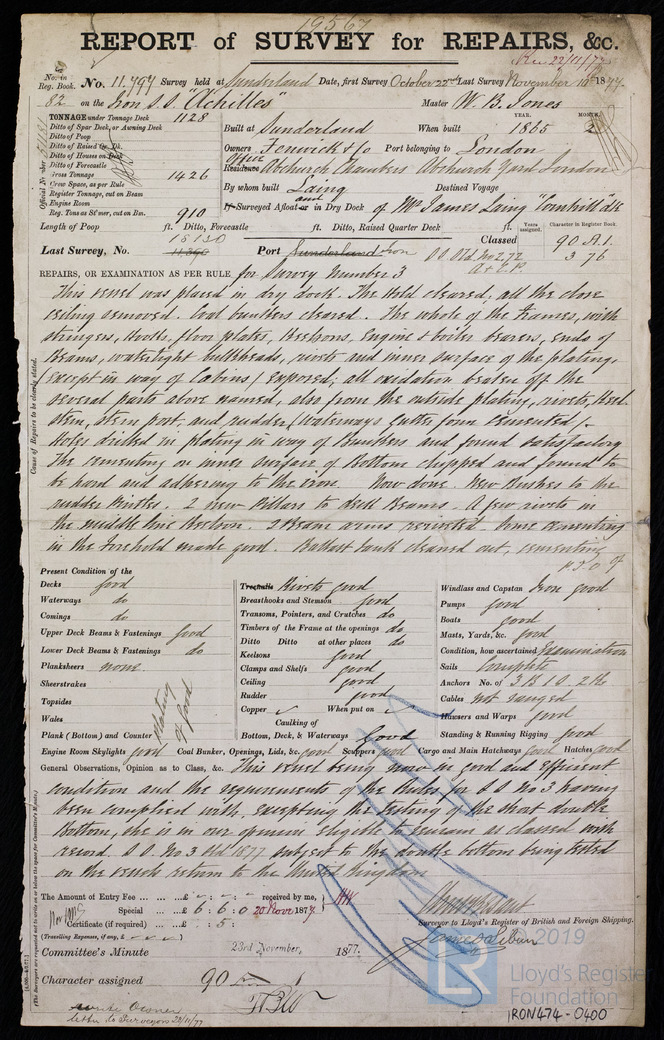 19567
REPORT of SURVEY for REPAIRS, &c.
Rec 22/11/77
No. in Reg. Book.
No. 11,797 Survey held at Sunderland Date, first Survey October 22nd Last Survey November 10th 1877.
82 on the Iron S.S. "Achilles" Master W. B. Jones
TONNAGE under Tonnage Deck 1128
Ditto of Spar Deck, or Awning Deck
Ditto of Poop
Ditto of Raised Qr. Dk.
Ditto of Houses on Deck
Ditto of Forecastle
Gross Tonnage 1426
Crew Space, as per Rule
Register Tonnage, cut on Beam
Engine Room
Reg. Tons as St'mer, cut on Bm. 910
YEAR. MONTH.
Built at Sunderland When built 1865 2
Owners Fenwick & Co Port belonging to London
Office
Residence Abchurch Chambers Abchurch Yard London
By whom built Laing Destined Voyage
If Surveyed Afloat and or in Dry Dock of Mr James Laing "Cornhill" dk
Length of Poop ft. Ditto, Forecastle ft. Ditto, Raised Quarter Deck ft.
Years assigned. Character in Register Book.
Classed 90 A.1.
3 76
Last Survey, No. 18130 Port Sunderland Iron
REPAIRS, OR EXAMINATION AS PER RULE, for Survey Number 3
This vessel was placed in dry dock. The Hold cleared, all the close
ceiling removed. Coal bunkers cleared. The whole of the frames, with
stringers, hooks, floor plates, Keelsons, Engine & boiler bearers, ends of
Beams, watertight bulkheads, rivets and inner surface of the plating,
(except in way of Cabins) Exposed, all oxidation beaten off the
several parts above named, also from the outside plating, rivets, Keel
stem, stern post, and rudder (Waterways Gutter form cemented)
Holes drilled in plating in way of Bunkers and found satisfactory
The cementing on inner surface of Bottom chipped and found to
be hard and adhering to the iron. Now done. New Bushes to the
rudder Pintles. 2 new Pillars to deck Beams. A few rivets in
the middle line Keelson. 2 Beam arms reriveted. Some cementing
in the forehold made good. Ballast tank cleaned out, cementing of
P.T.O
Cause of Repairs to be clearly stated.
Present Condition of the
Decks good
Waterways do
Comings do
Upper Deck Beams & Fastenings good
Lower Deck Beams & Fastenings do
Planksheers none.
Sheerstrakes
Topsides
Wales
Plank (Bottom) and Counter
Plating good
Treenails Rivets good
Breasthooks and Stemson good
Transoms, Pointers, and Crutches do
Timbers of the Frame at the openings do
Ditto Ditto at other places do
Keelsons good
Clamps and Shelfs good
Ceiling good
Rudder good
Copper When put on
Caulking of
Bottom, Deck, & Waterways Good
Windlass and Capstan Iron good
Pumps good
Boats good
Masts, Yards, &c. good
Condition, how ascertained Examination
Sails Complete
Anchors No. of 3 B 1 S. 2 K
Cables Not ranged
Hawsers and Warps good
Standing & Running Rigging good
Engine Room Skylights good Coal Bunker, Openings, Lids, &c. good Scuppers good Cargo and Main Hatchways good Hatches good
General Observations, Opinion as to Class, &c. This vessel being now in good and Efficient
condition and the requirements of the Rules for S S No 3 having
been complied with, excepting the testing of the short double
Bottom, she is in our opinion eligible to remain as classed with
record. S.S. No 3 Sld 1877 subject to the double bottom being tested
on the vessels return to the United Kingdom
The Amount of Entry Fee ... £ : : received by me,
Special ... £ 6 : 6 : 0 20 Novr 1877
Certificate (if required) ... £ : 5 :
(Travelling Expenses, if any, £
Surveyor to Lloyd's Register of British and Foreign Shipping.
Committee's Minute 23rd November, 1877.
Character assigned 90
Write Owner
letter to Surveyors 22/11/77
© 2019
LR
Lloyd's Register
Foundation
IRON474-0400